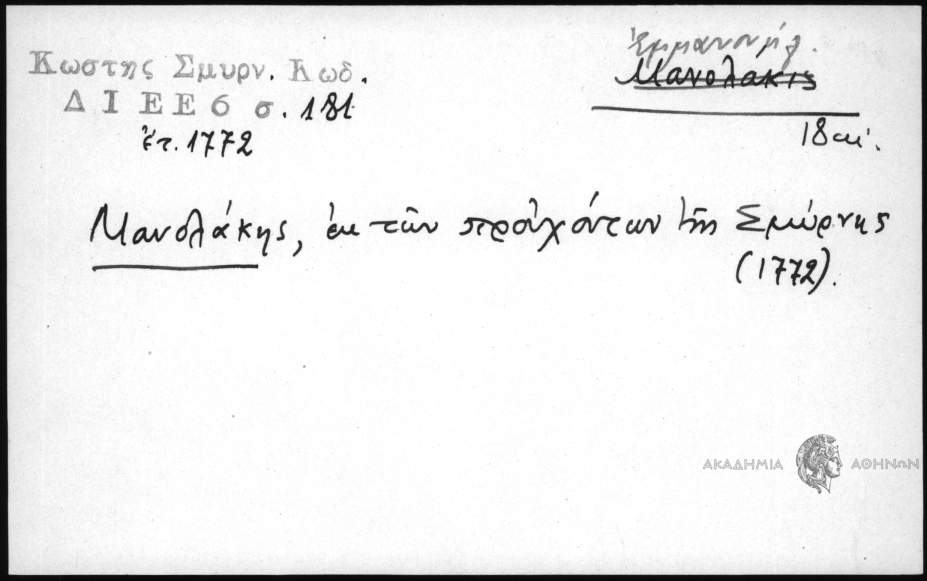 Κωστης Σμυρν. Κωδ.
Δ Ι Ε Ε 6 σ. 181
ἔτ. 1772
Ἐμμανουήλ.
Μανολάκις
18 αἰ.
Μανολάκης, ἐκ τῶν προὐχόντων τῆς Σμύρνης
(1772).
ΑΚΑΔΗΜΙΑ ΑΘΗΝΩΝ